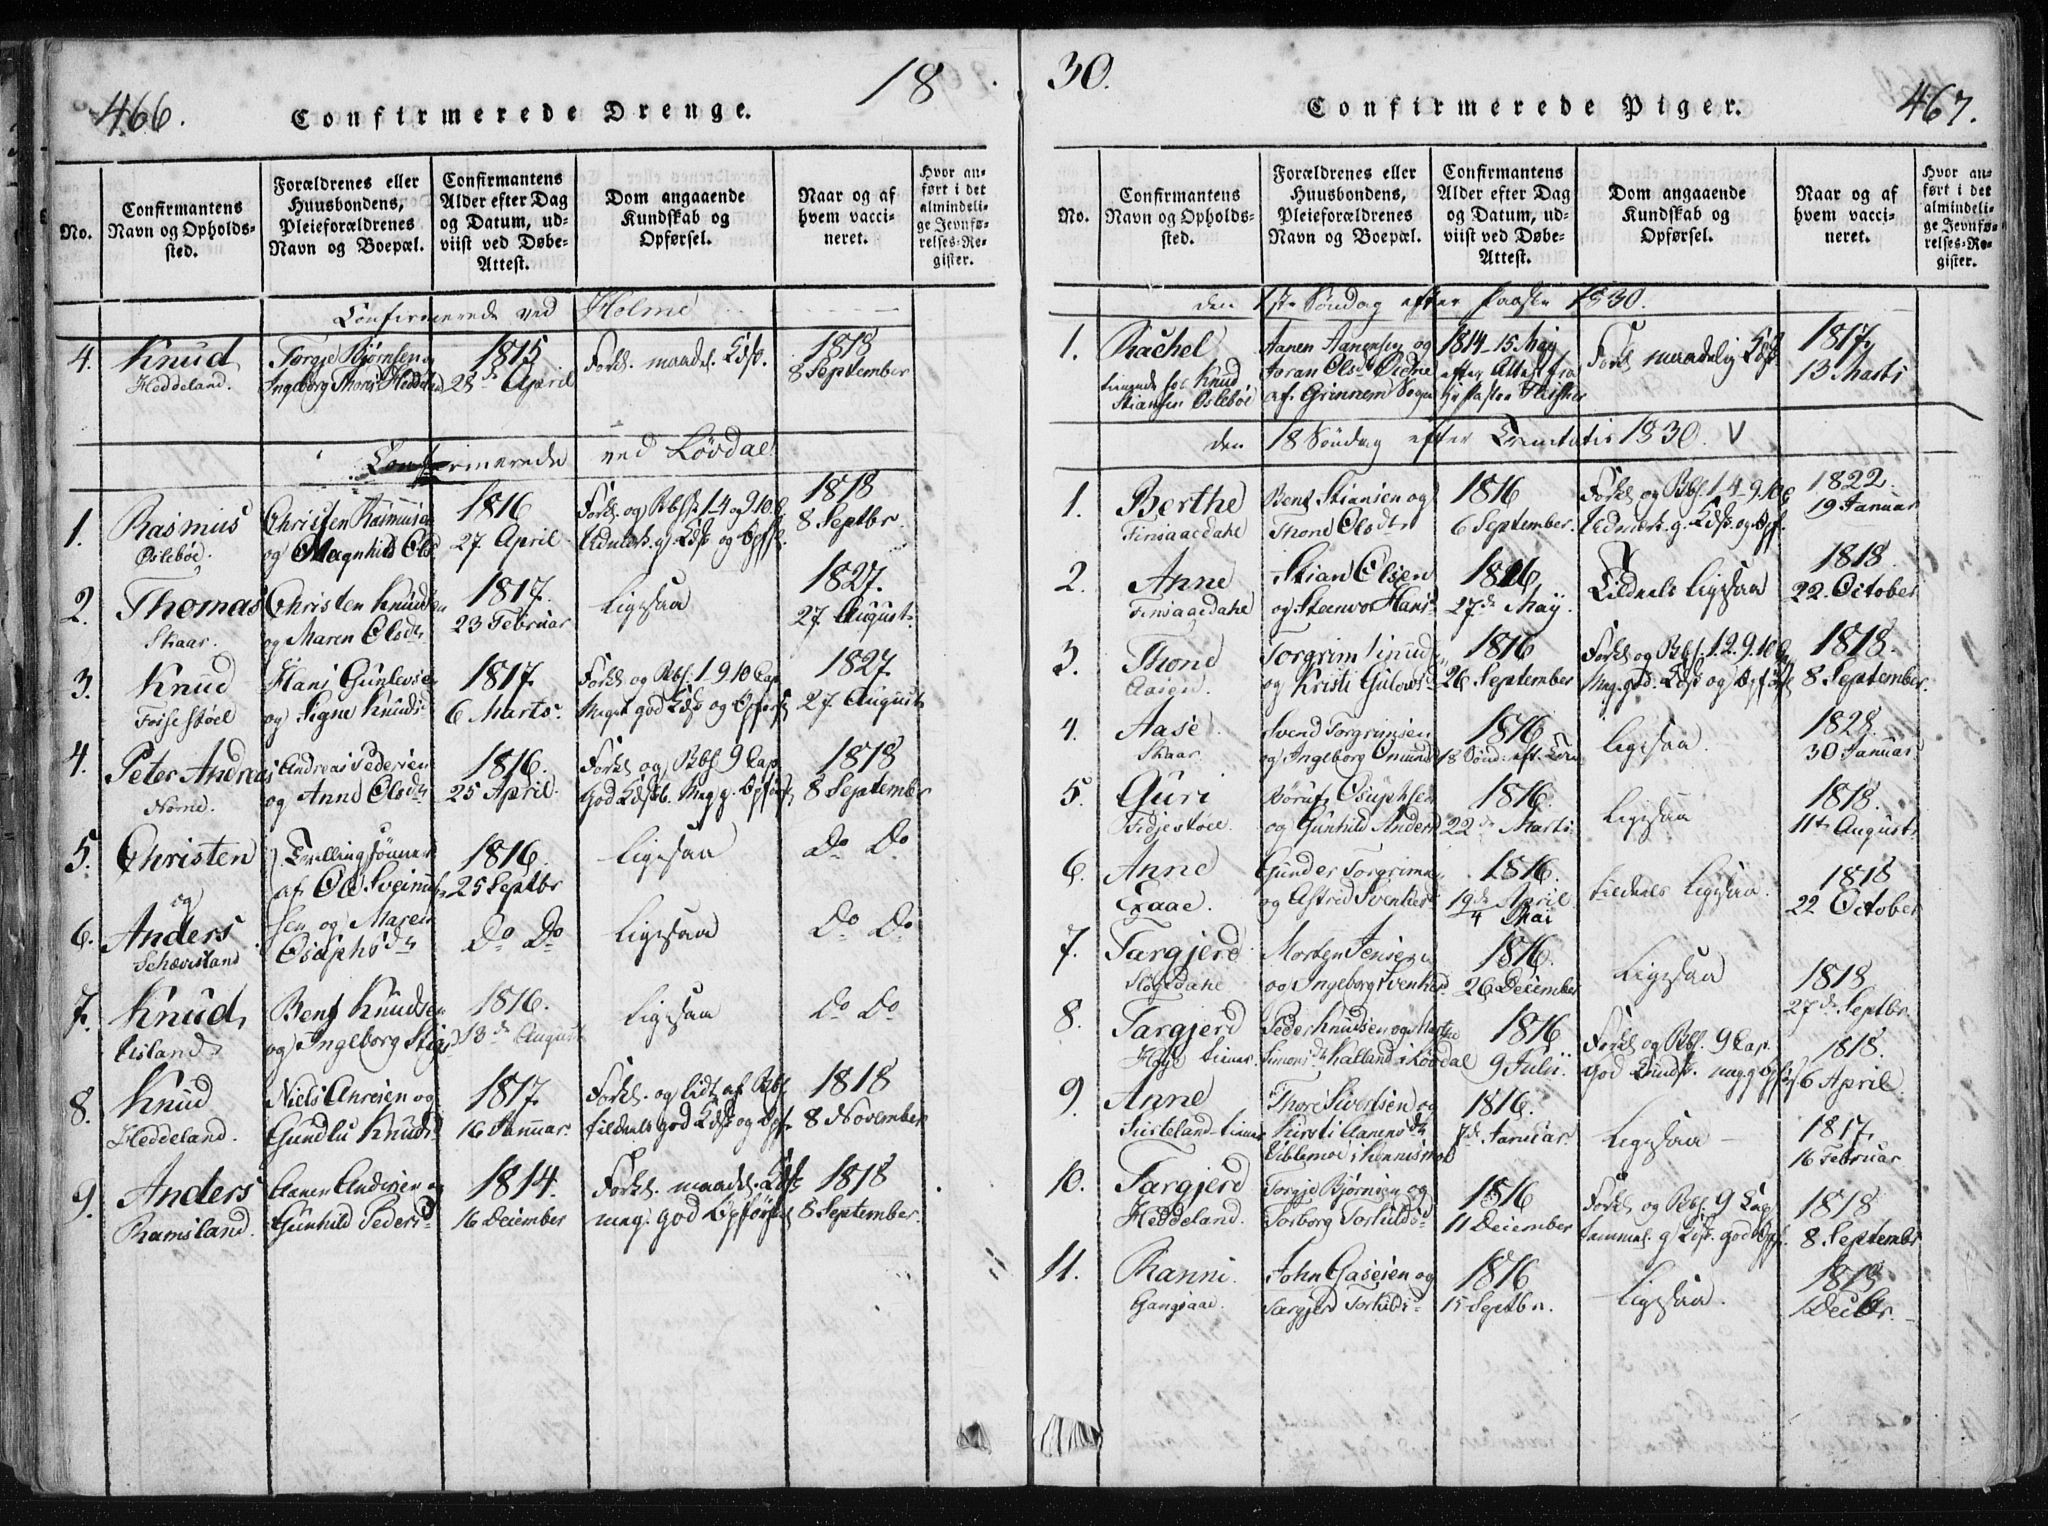 466.
Confirmerede Drenge.
18
No.
Confirmantens
Navn og Opholds-
sted.
Forældrenes eller
Huusbondens,
Pleieforældrenes
Navn og Boepæl.
Confirmantens
Alder efter Dag
og Datum, ud-
viist ved Døbe-
Attest.
Dom angaaende
Kundskab og
Opførsel.
Naar og af
hvem vacci-
neret.
Hvor an-
ført i det
almindeli-
ge Jevnfø-
relses-Re-
gister.
Confirmerede ved Holme
4. Knud
Heddeland.
Torgje Bjørnsen og
Ingeborg Thorsd Heddeland
1815
28de April
Forkl. maadel. Kdsk.
1818
8 September
Confirmerede ved Løvdal
1. Rasmus
Øslebøe.
Christen Rasmussen
og Magnhild Olsd
1816
27 April
Forkl. og Rbf. 1-4 og 9.10 C
Udmærk. g. Kdsk og Opfl.
1818
8 Septbr.
2. Thomas
Skaar.
Christen Knudsen
og Maren Olsdtr
1817.
23 Februar
Ligesaa
1827.
27 August.
3. Knud
Foisestøel
Hans Gunlevsen
og Signe Knuds
1817.
6 Marts.
Forkl og Rbf. 1.9.10 Cap
Meget god Kdsk og Opførsl
1827.
27 August
4. Peter Andreas
Nome.
Andreas Pedersen
og Anne Olsdtr
1816.
25 April.
Forkl og Rbf 9 Cap
god Kdskb. Meg g. Opførsl
1818
8 September
5. Christen
og
Tvillingsønner
af Ole Sveinu
1816.
25 Septbr
Ligesaa
Do Do
6. Anders
Schævisland
sen og Maren
Osuphsdtr
Do Do
Ligesaa
Do Do
7. Knud
Usland
Bent Knudsen
og Ingeborg Stigsd
1816.
13de August
Ligesaa
Do Do
8. Knud
Heddeland.
Niels Chresten og
Gundlu Knudsd
1817.
16 Januar.
Forkl. og lidt af Rbf
tildeels god Kdsk og Opf.
1818
8 November
9. Anders
Ramsland.
Aanen Andersen og
Gunhild Pedersd
1814.
16 December
Forkl. maadel. Kdsk
meg. god Opførsel
1818
8 September.
30.
Confirmerede Piger.
467.
No.
Confirmantens
Navn og Opholds-
sted.
Forældrenes eller
Huusbondens,
Pleieforældrenes
Navn og Boepæl.
Confirmantens
Alder efter Dag
og Datum, ud-
viist ved Døbe-
Attest.
Dom angaaende
Kundskab og
Opførsel.
Naar og af
hvem vacci-
neret.
Hvor an-
ført i det
almindeli-
ge Jevnfø-
relses-Re-
gister.
den 1ste Søndag efter Paaske 1830.
1. Rachel
tienende for Knud
Stiansen Øslebøe
Aanen Aanensen og
Joran Olsd Oidne
af Grinnem Sogn
1814-15 Maij
efter Attest fra
Hr Pastor Fleischer
Forkl maadelig Kdsk
1817
13 Marts
den 18 Søndag efter Trinitatis 1830. V
1. Berthe
Finsaacdahl
Bent Stiansen og
Thone Olsdtr
1816
6 September.
Forkl og Rbf. 1.4-9.10 C
Udmærk. g. Kdsk. og Opf.
1822.
19 Januar
2. Anne
Finsaacdahl
Stian Olsen
og Steenvor Hans
1816
27de Maij.
Tildeels Ligesaa
1818.
22 October
3. Thone
Aasen.
Torgrim Knuds
og Kristi Gulovs
1816
26 September
Forkl og Rbf. 1.2.9.10 C
Meg. god. Kdsk og Opførsl
1818.
8 September.
4. Aase
Skaar
Svend Torgrimsen
og Ingeborg Omund
1816
18 Sønd. eft. Trin
Ligesaa.
1828.
30 Januar
5. Guri
Fidjestøel
Børuf Osuphsen
og Gunhild Andersd
1816.
22de Marts
Ligesaa
1818.
11te August
6. Anne
Exaae.
Gunder Torgrims
og Astrid Svenkes
1816.
19de April
4 Mai
tildeels Ligesaa.
1818
22 October
7. Targjerd
Høgedahl
Morten Jensen
og Ingeborg Svenkesd
1816.
26 December
Ligesaa
1818
27de Septbr.
8. Targjerd
Høye tiener
Peder Knudsen og Martha
Simonsdtr Kalland i Løvdal
1816
9 Julii.
Forkl og Rbf. 9 Cap.
god Kundsk. meg g Opførsl
1818.
6 April.
9. Anne
tiener
Thore Sivertsen og
Kirsti Aanensdtr
1816.
7de Januar
Ligesaa
1817.
16 Februar
10. Targjerd
Heddeland.
Torgje Bjørnsen og
Torborg Torkildsd
1816
11 December
Forkl og Rbf. 9 Cap
temmel. g Kdsk. god Opf.
1818
8 Septembr
11. Ranni.
Gangsaae.
John Gasesen og
Targjerd Torkilds
1816
15 Septbr.
Ligesaa.
1 Decbr.